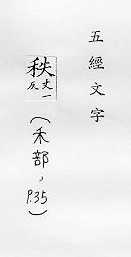 五經文字
秩丈一反
(禾部,P.35)